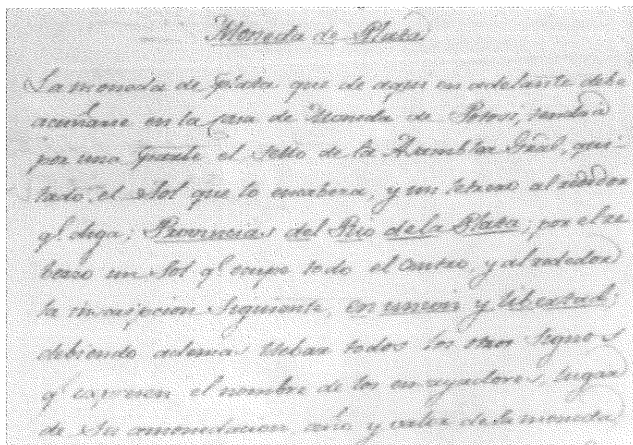 Moneda de Plata
La moneda de Plata que de aqui en adelante debe
acuñarse en la casa de Moneda de Potosi, tendrá
por una parte el Sello de la Asamblea Gral, qui-
tado el Sol que lo encabeza, y un letrero al rededor
qe diga; Provincias del Rio de la Plata; por el re
berso un Sol qe ocupe todo el centro, y al rededor
la inscripcion siguiente, en union y libertad;
debiendo ademas llebar todos los otros signos
qe expresen el nombre de los ensayadores, lugar
de su amonedacion año y valor de la moneda